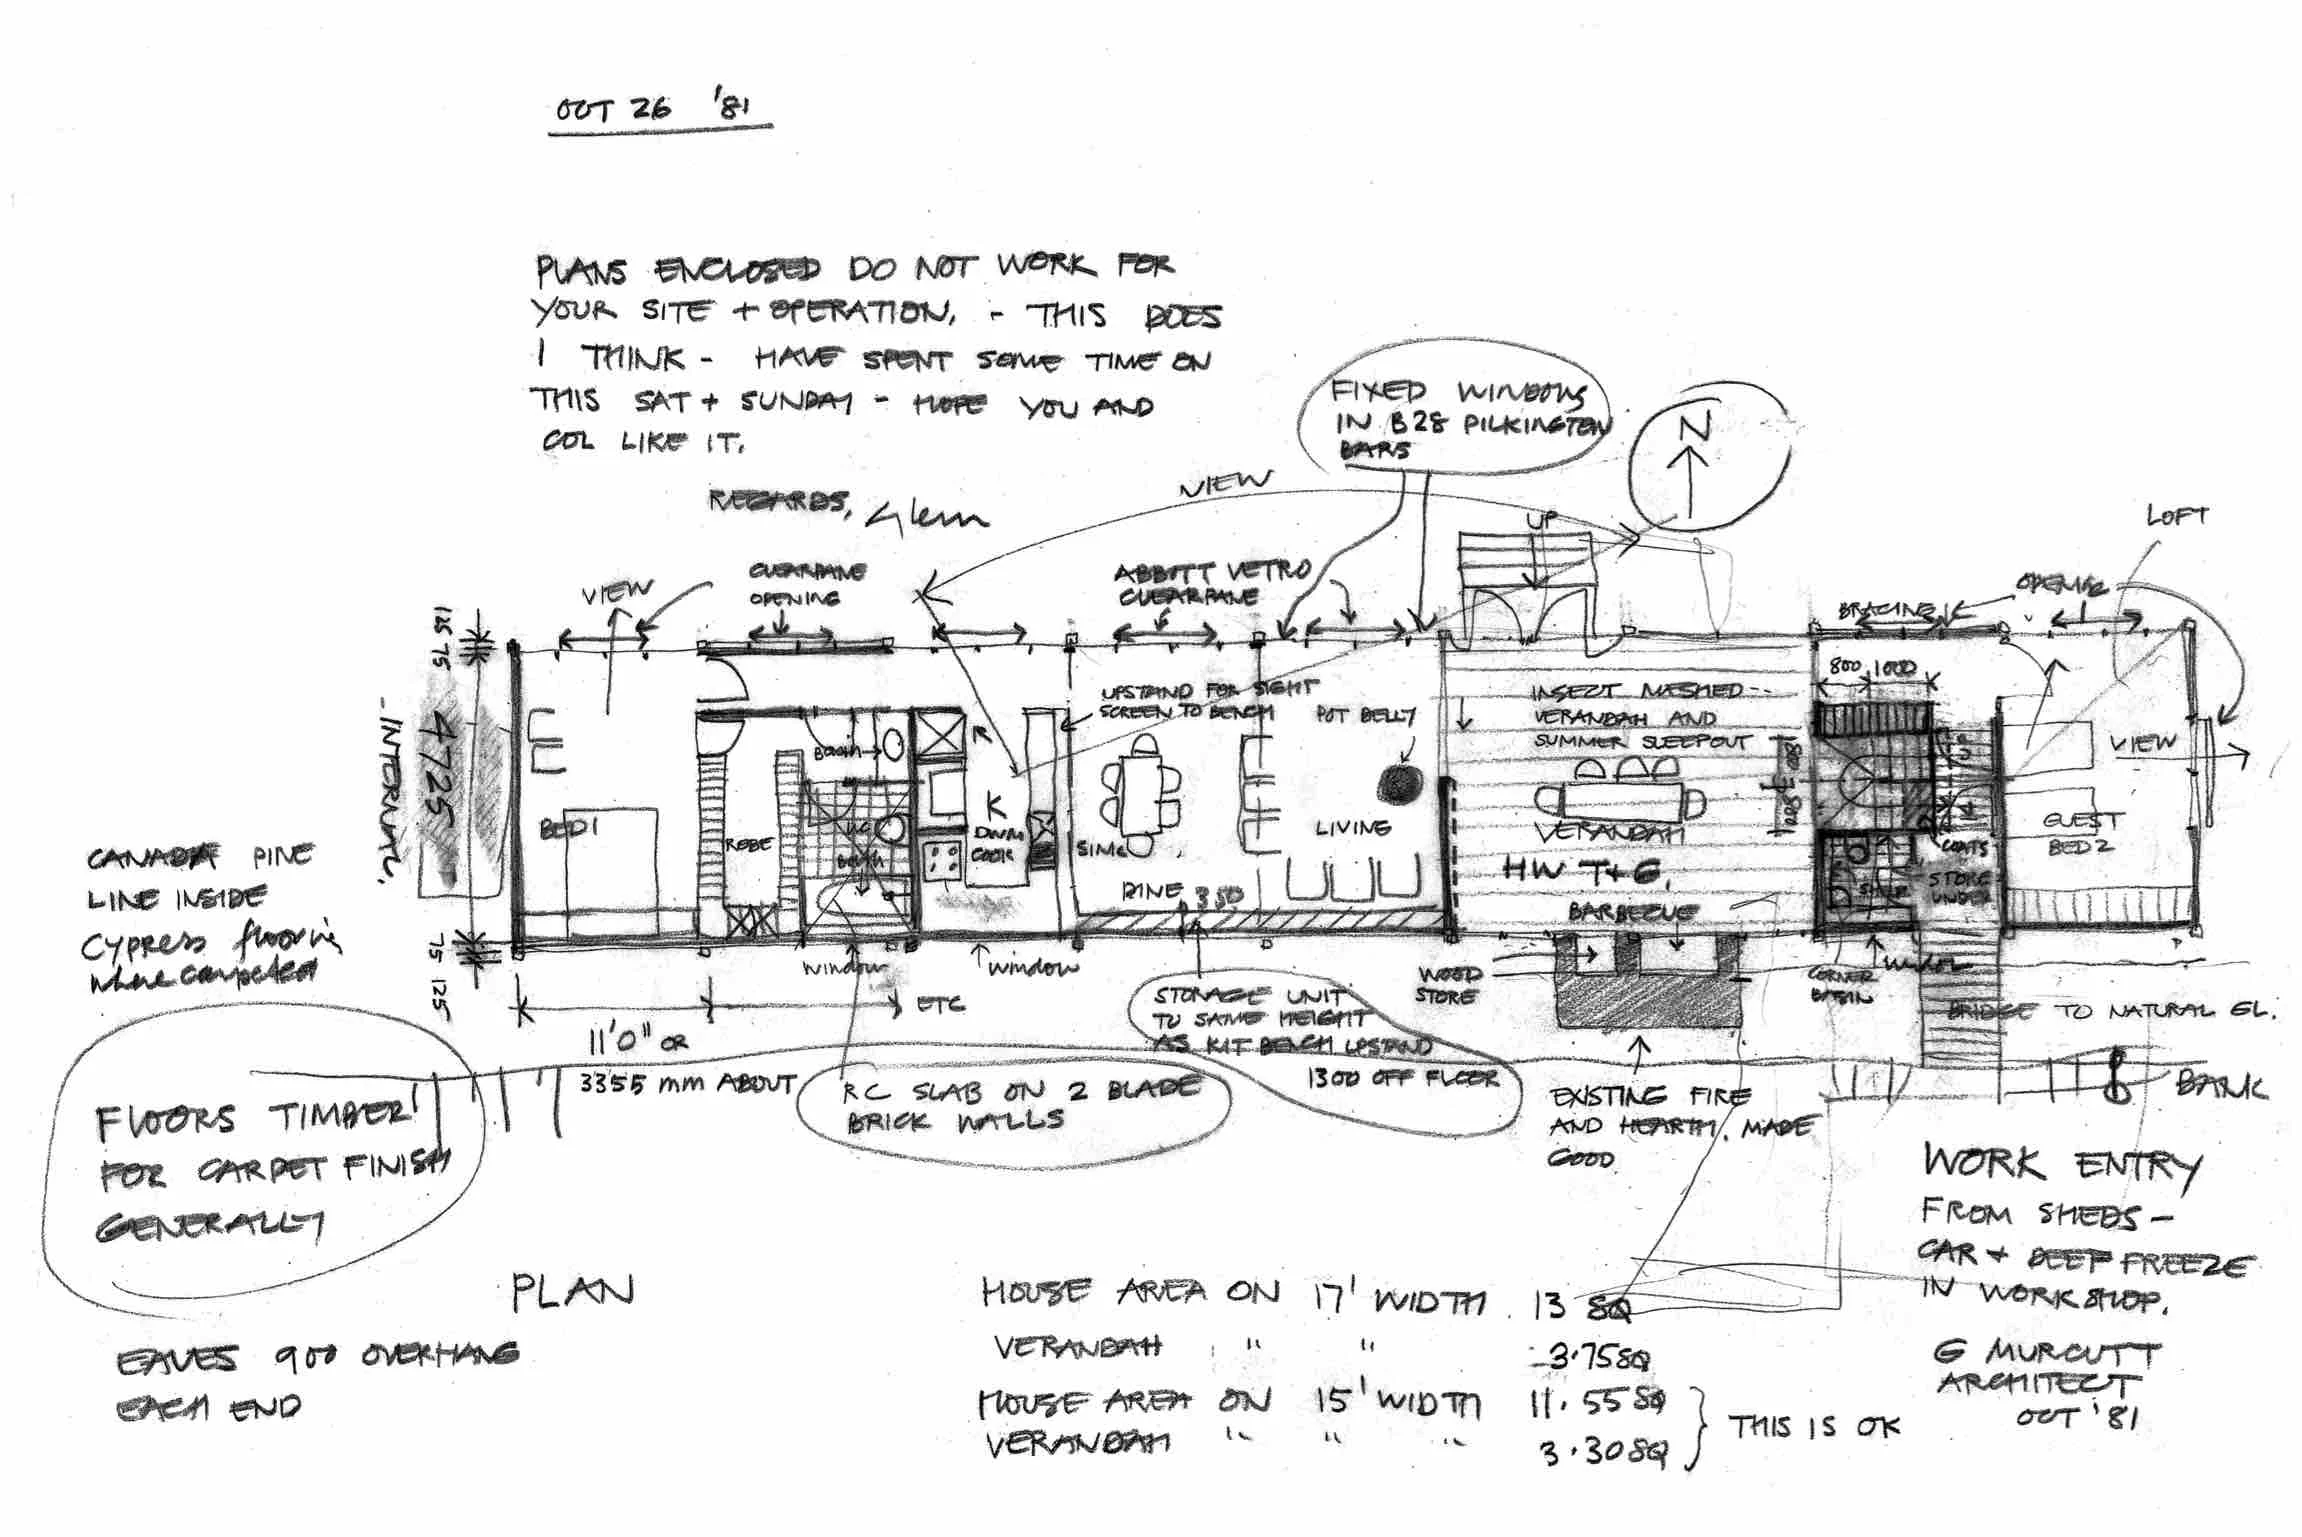 OCT 26 '81
PLANS ENCLOSED DO NOT WORK FOR
YOUR SITE + OPERATION. - THIS DOES
I THINK - HAVE SPENT SOME TIME ON
THIS SAT + SUNDAY - HOPE YOU AND
COL LIKE IT.
REGARDS, Glenn
FIXED WINDOWS
IN B28 PILKINGTON
BARS
N
VIEW
UP
LOFT
VIEW
CLEARPANE
OPENING
ABBOTT VETRO
CLEARPANE
BRACING
OPENING
125 75
4725
INTERNAL.
75 125
UPSTAND FOR SIGHT
SCREEN TO BENCH
POT BELLY
INSECT MESHED
VERANDAH AND
SUMMER SLEEPOUT
800 1000
Basin
R
VIEW
BED 1
ROBE
WC
Bath
K
COOK
DINE
350
LIVING
VERANDAH
HW T+G.
BARBECUE
COATS
STORE
UNDER
GUEST
BED 2
CANADA PINE
LINE INSIDE
Cypress flooring
where carpeted
window
window
WOOD
STORE
CORNER
BASIN
window
ETC
11'0" OR
3355 mm ABOUT
STORAGE UNIT
TO SAME HEIGHT
AS KIT BENCH UPSTAND
1300 OFF FLOOR
BRIDGE TO NATURAL GL.
BANK
RC SLAB ON 2 BLADE
BRICK WALLS
EXISTING FIRE
AND HEARTH. MADE
GOOD
FLOORS TIMBER
FOR CARPET FINISH
GENERALLY
WORK ENTRY
FROM SHEDS -
CAR + DEEP FREEZE
IN WORKSHOP.
PLAN
EAVES 900 OVERHANG
EACH END
HOUSE AREA ON 17' WIDTH. 13 SQ
VERANDAH " " 3.75 SQ
HOUSE AREA ON 15' WIDTH 11.55 SQ
VERANDAH " " " 3.30 SQ
THIS IS OK
G MURCUTT
ARCHITECT
OCT '81